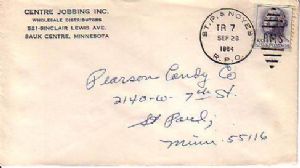 CENTRE JOBBING INC.
WHOLESALE DISTRIBUTORS
521-SINCLAIR LEWIS AVE.
SAUK CENTRE, MINNESOTA
ST. P. & NOYES
TR 7
SEP 28
1964
R.P.O.
Pearson Candy Co
2140-W-7th St.
St Paul,
Minn-55116